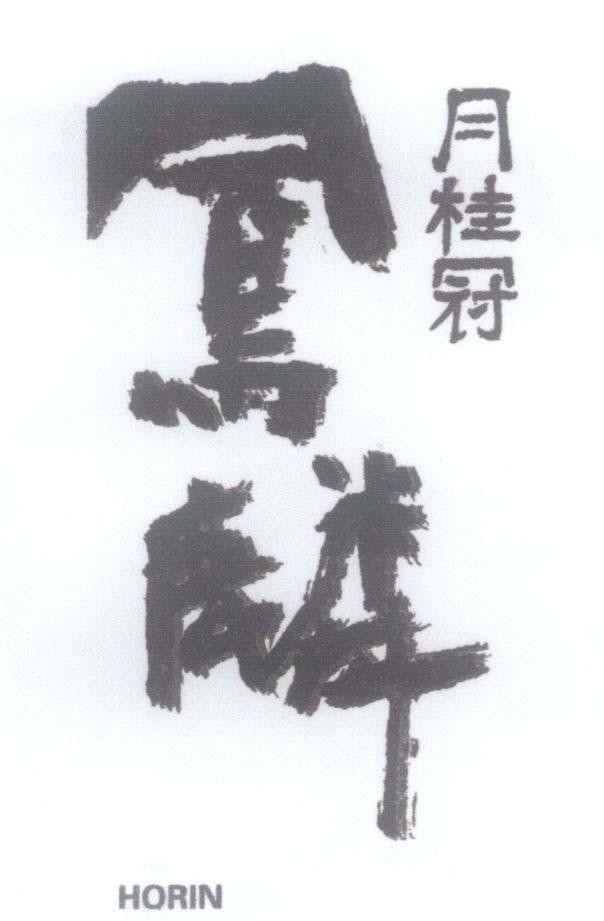 月桂冠
鳳麟
HORIN